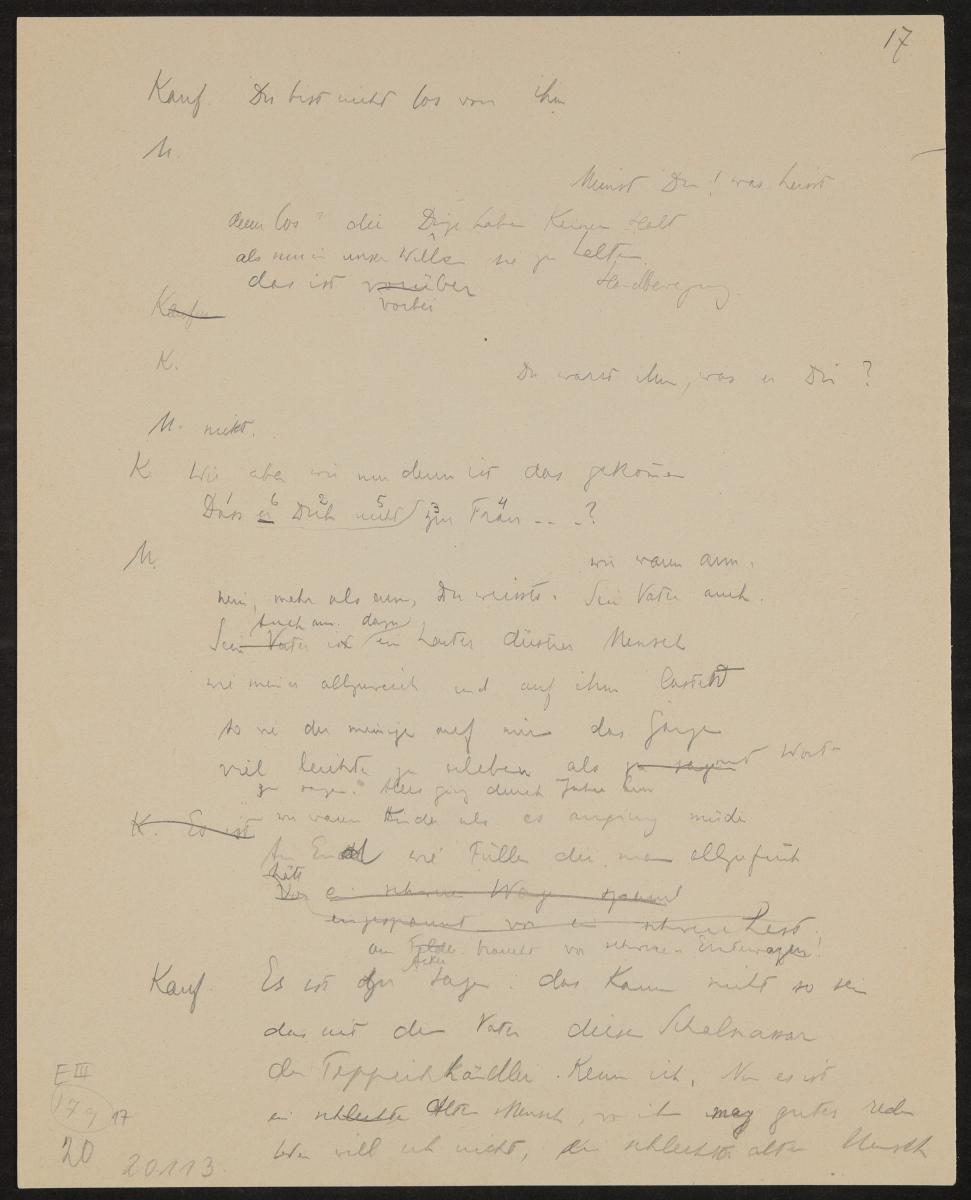 17
Kauf. Du bist nicht los von ihm
M.
Meinst Du! was heisst
denn los? die Dinge haben keinen Halt
als nur in unserm Willen sie zu halten.
das ist vorüber Handbewegung.
vorbei
Kaufm
K.
Du warst ihm, was er Dir?
M. nickt.
K Wie aber wie nun denn ist das gekommen
1 6 2 5 3 4
Dass er Dich nicht zur Frau - - - ?
M. wir waren arm.
nein, mehr als arm, Du weissts. Sein Vater auch.
auch nun. dazu
Sein Vater ist ein harter düstrer Mensch
wie meiner allzuweich und auf ihm lastet
so wie der meinige auf mir das Ganze
viel leichter zu erleben als zu sagen mit Worten
zu sagen. Alles ging durch Jahre hin
K. Es ist wir waren Kinder als es anging müde
Am End wie Füllen die man allzufrüh
hätt
Vor e schweren Wagen spannt
eingespannt vor ein schwere Last.
am Felde braucht vor schweren Erntewagen!
Acker
Kauf. Es ist zu sagen: das kann nicht so sein
das mit dem Vater diesem Schalnassar
dem Teppichhändler. Kenn ich. Nun es ist
ein schlechter alter Mensch, wo ich mag gutes reden
will ich nicht, ein schlechter alter Mensch
E III
17 g 17
20 20113